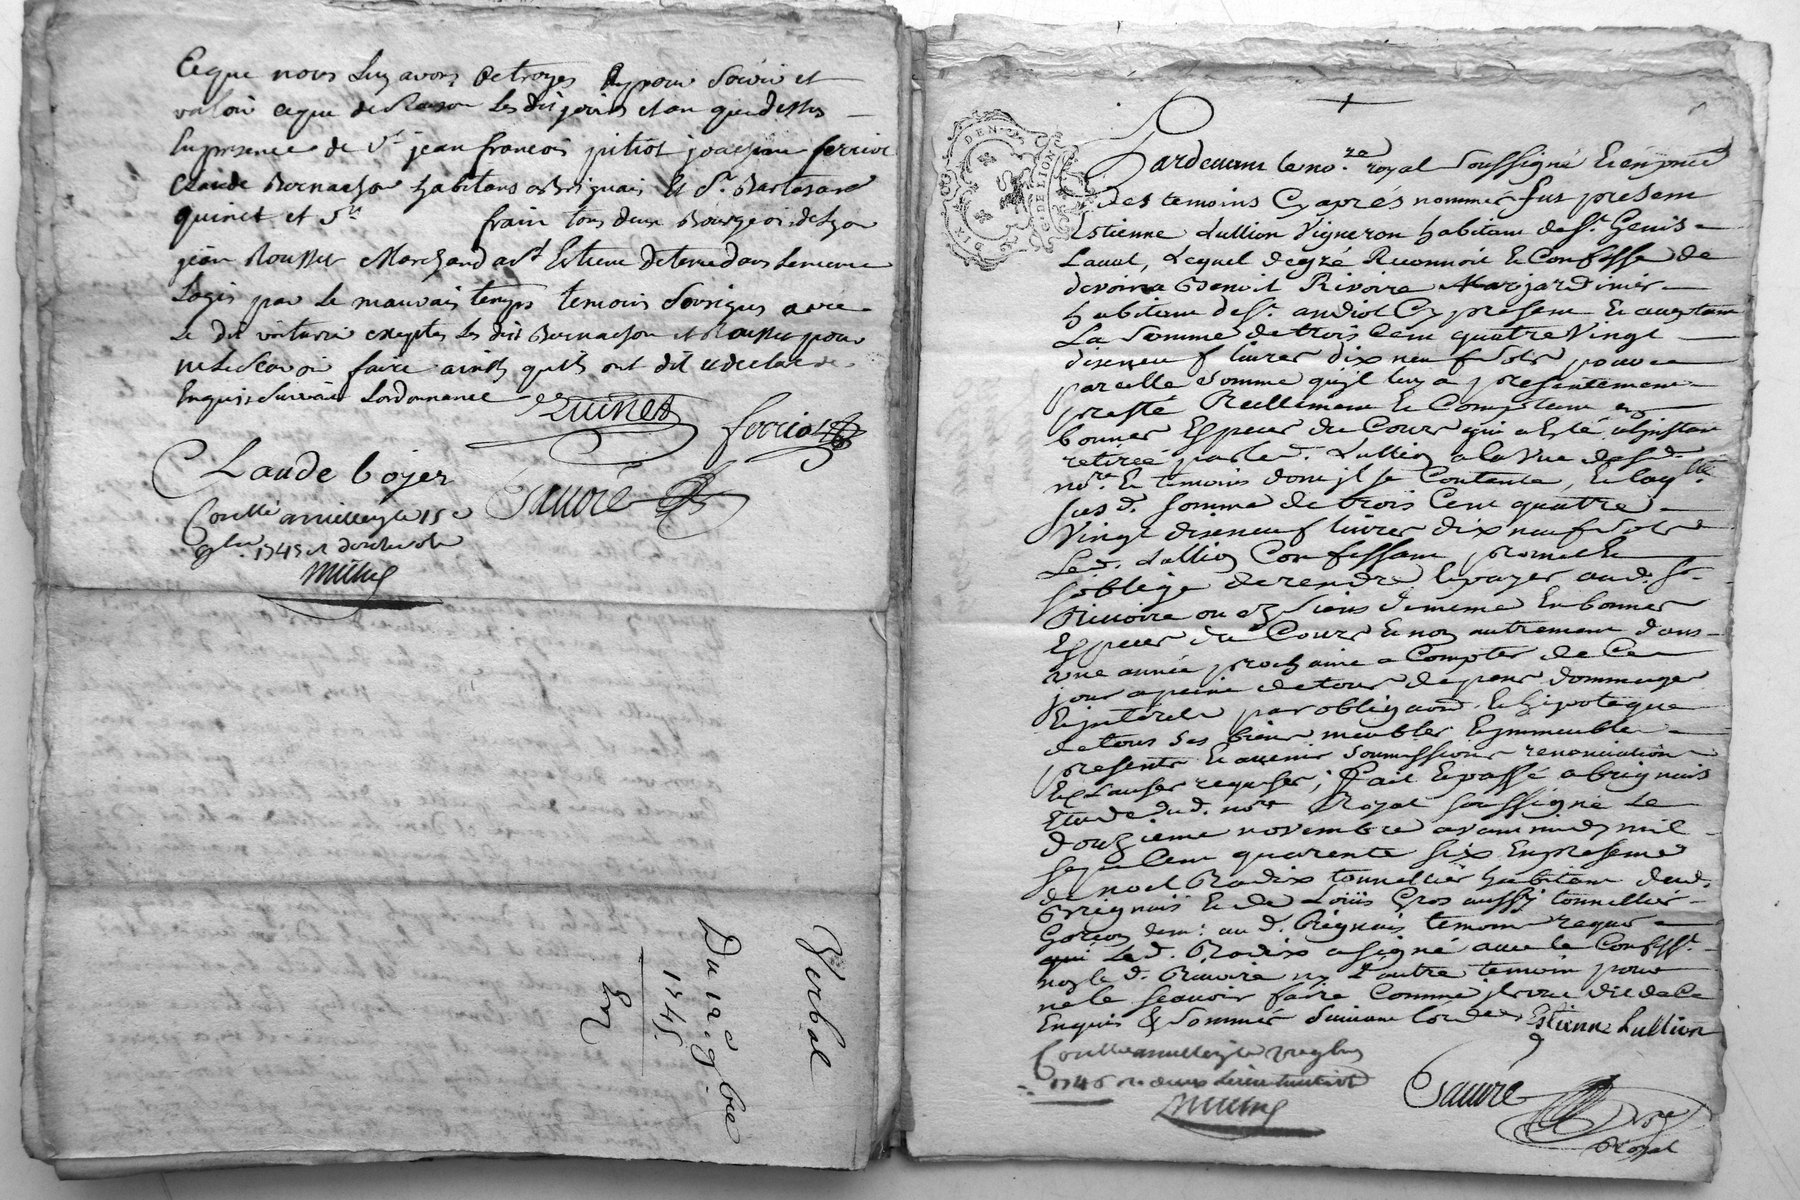 Ceque nous Luy avons Octroyes pour Servir et
valoir ceque de Raison Les dits jours et an que dessus
En presence de Sr. jean françois pitiot joachim ferriot
Claude Bernachon habitans a Brignais Et Sr. Baltazard
quinet et Sr. frain tous deux Bourgeois de Lyon
jean Rousset Marchand a St. Estiene detenu dans Le meme
Logis par Le mauvais temps temoins Soussignes avec
Le dit voiturie exceptes Les dits Bernachon et Rousset pour
ne Le Scavoir faire ainsy quils ont dit et declare de
Enquis Suivant Lordonnance
Quinet
ferriot
Claude boyer
Sauvre
Conllé a millery le 15e
9bre. 1745
Verbal
Du 12e 9bre
1745
DEN
G. DE LION
Pardevant le nore. royal Soussigné Et en presence
des temoins Cy après nommés fut present
Estienne Lullion Vigneron habitant de St. Genis
Laval, Lequel de gré Reconnoit Et Confesse de
devoir a Benoit Rivoire jardinier
habitant de St. andiol Cy present Et aceptant
La Somme de trois Cent quatre Vingt
dixneuf livres dix neuf Sols pour
pareille Somme qu'jl luy a presentement
presté Reellement Et Comptant en
bonnes Especes du Cours qui a Esté a l'jnstant
retirée par led. Lullion a la Vue dud.
nore. Et temoins dont jl se Contente, Et laquelle
susd. Somme de trois Cent quatre
Vingt dixneuf livres dix neuf Sols
Led. Lullion Confessant promet Et
s'oblige de rendre Et payer aud. Sr.
Rivoire ou es Siens de meme En bonnes
Especes du Cours Et non autrement dans
une année prochaine a Compter de Ce
jour a peine de tous depens dommages
Et jnterets par obligaon. Et hipoteque
de tous Ses biens meubles Et jmmeubles
presents Et avenir Soumissions renonciations
Et Clauses requises; fait Et passé a brignais
Etude dud. nore Royal soussigné Le
douzieme novembre avant midy mil
sept Cent quarente six En presence
de noel Radix tonnellier habitant dud.
Brignais Et de Loüis Gros aussy tonnellier
Garçon dem. au d. Brignais temoins requis
qui Led. Radix a signé avec le Confesst.
non le d. Rivoire ny L'autre temoin pour
ne le scavoir faire Comme jls ont dit de Ce
Enquis & Sommés Suivant l'ordce Estienne Lullion
Conllé a millery le
1746
Sauvre
Nre
Royal